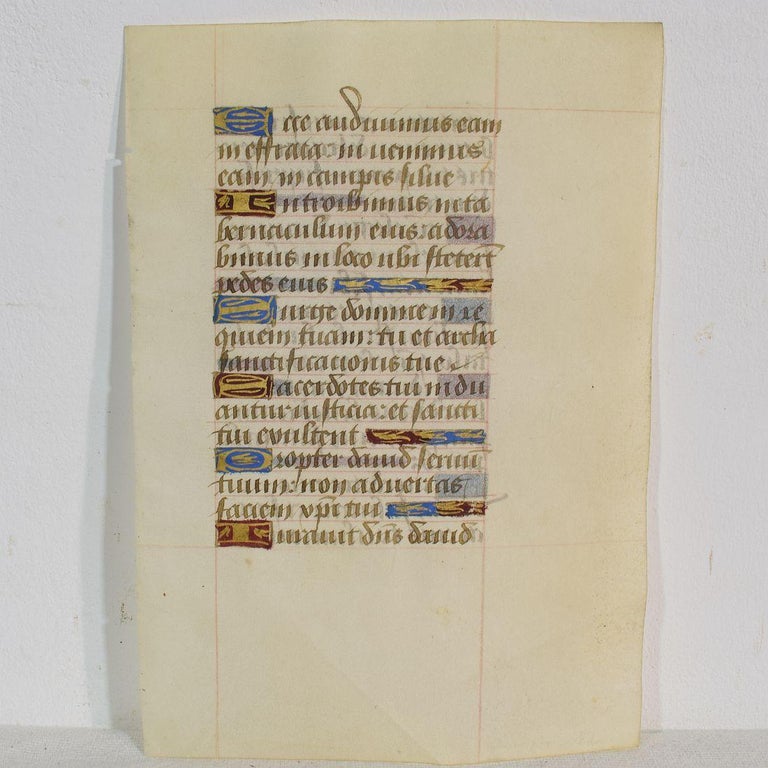 Ecce audiuimus eam
in effrata inuenimus
eam in campis silue
Introibimus in ta
bernaculum eius: adora
bimus in loco ubi stetert̄
pedes eius
Surge domine in re
quiem tuam: tu et archa
sanctificationis tue
Sacerdotes tui indu
antur iusticia: et sancti
tui exultent
Propter dauid seruū
tuum: non aduertas
faciem xp̄i tui
Iurauit dn̄s dauid